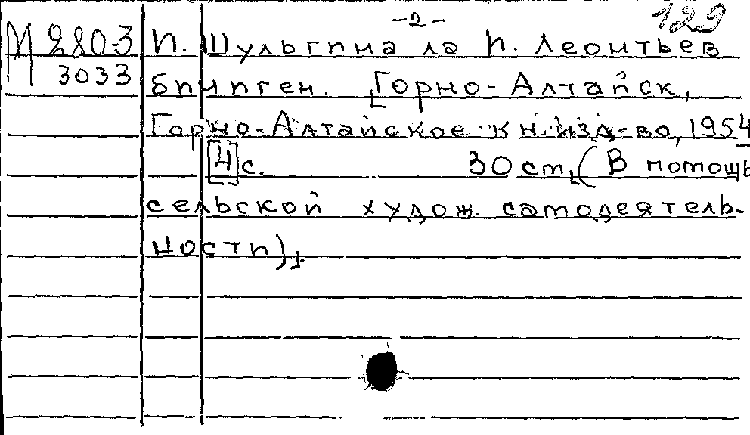 -2-
129
М 2803
3033
П. Шульгина ла П. Леонтьев
бичиген. [Горно-Алтайск,
Горно-Алтайское кн.изд-во, 1954
[4]с. 30 cm. (В помощь
сельской худож. самодеятель-
ности).